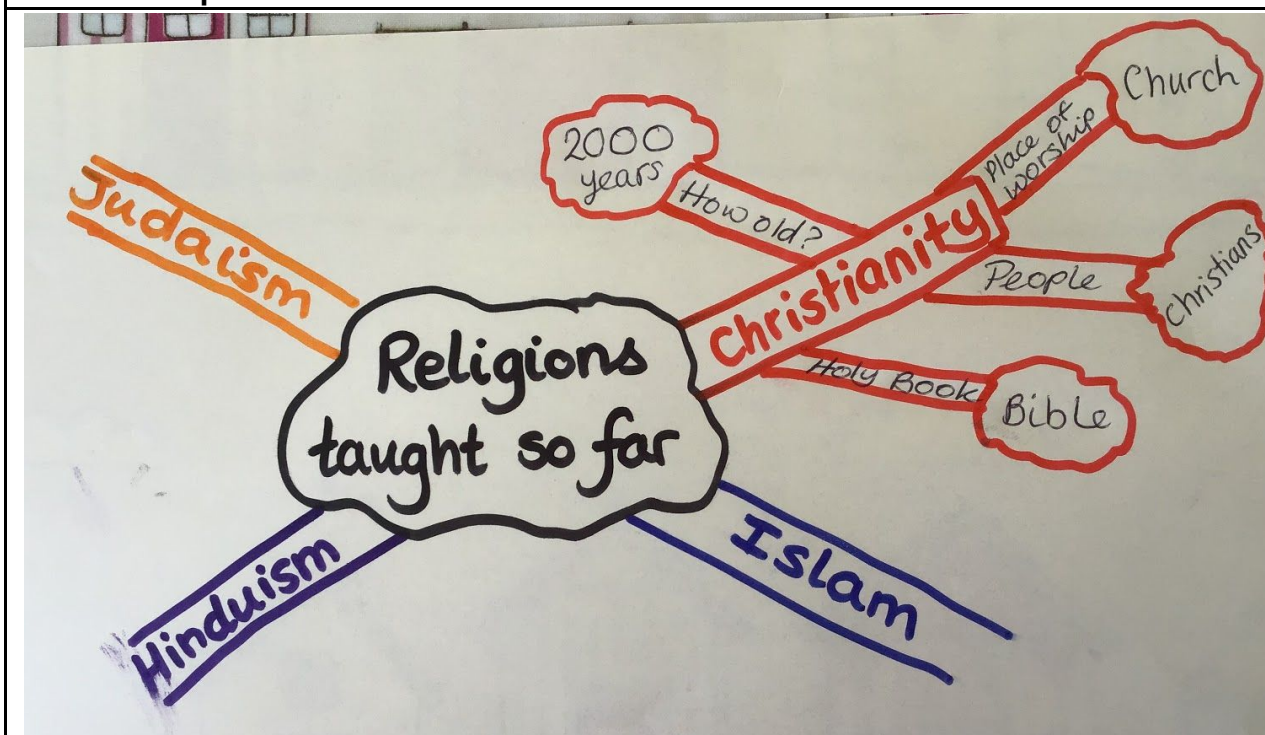 Religions
taught so far
Judaism
Christianity
How old?
2000
years
Place of
worship
Church
People
Christians
Holy Book
Bible
Islam
Hinduism